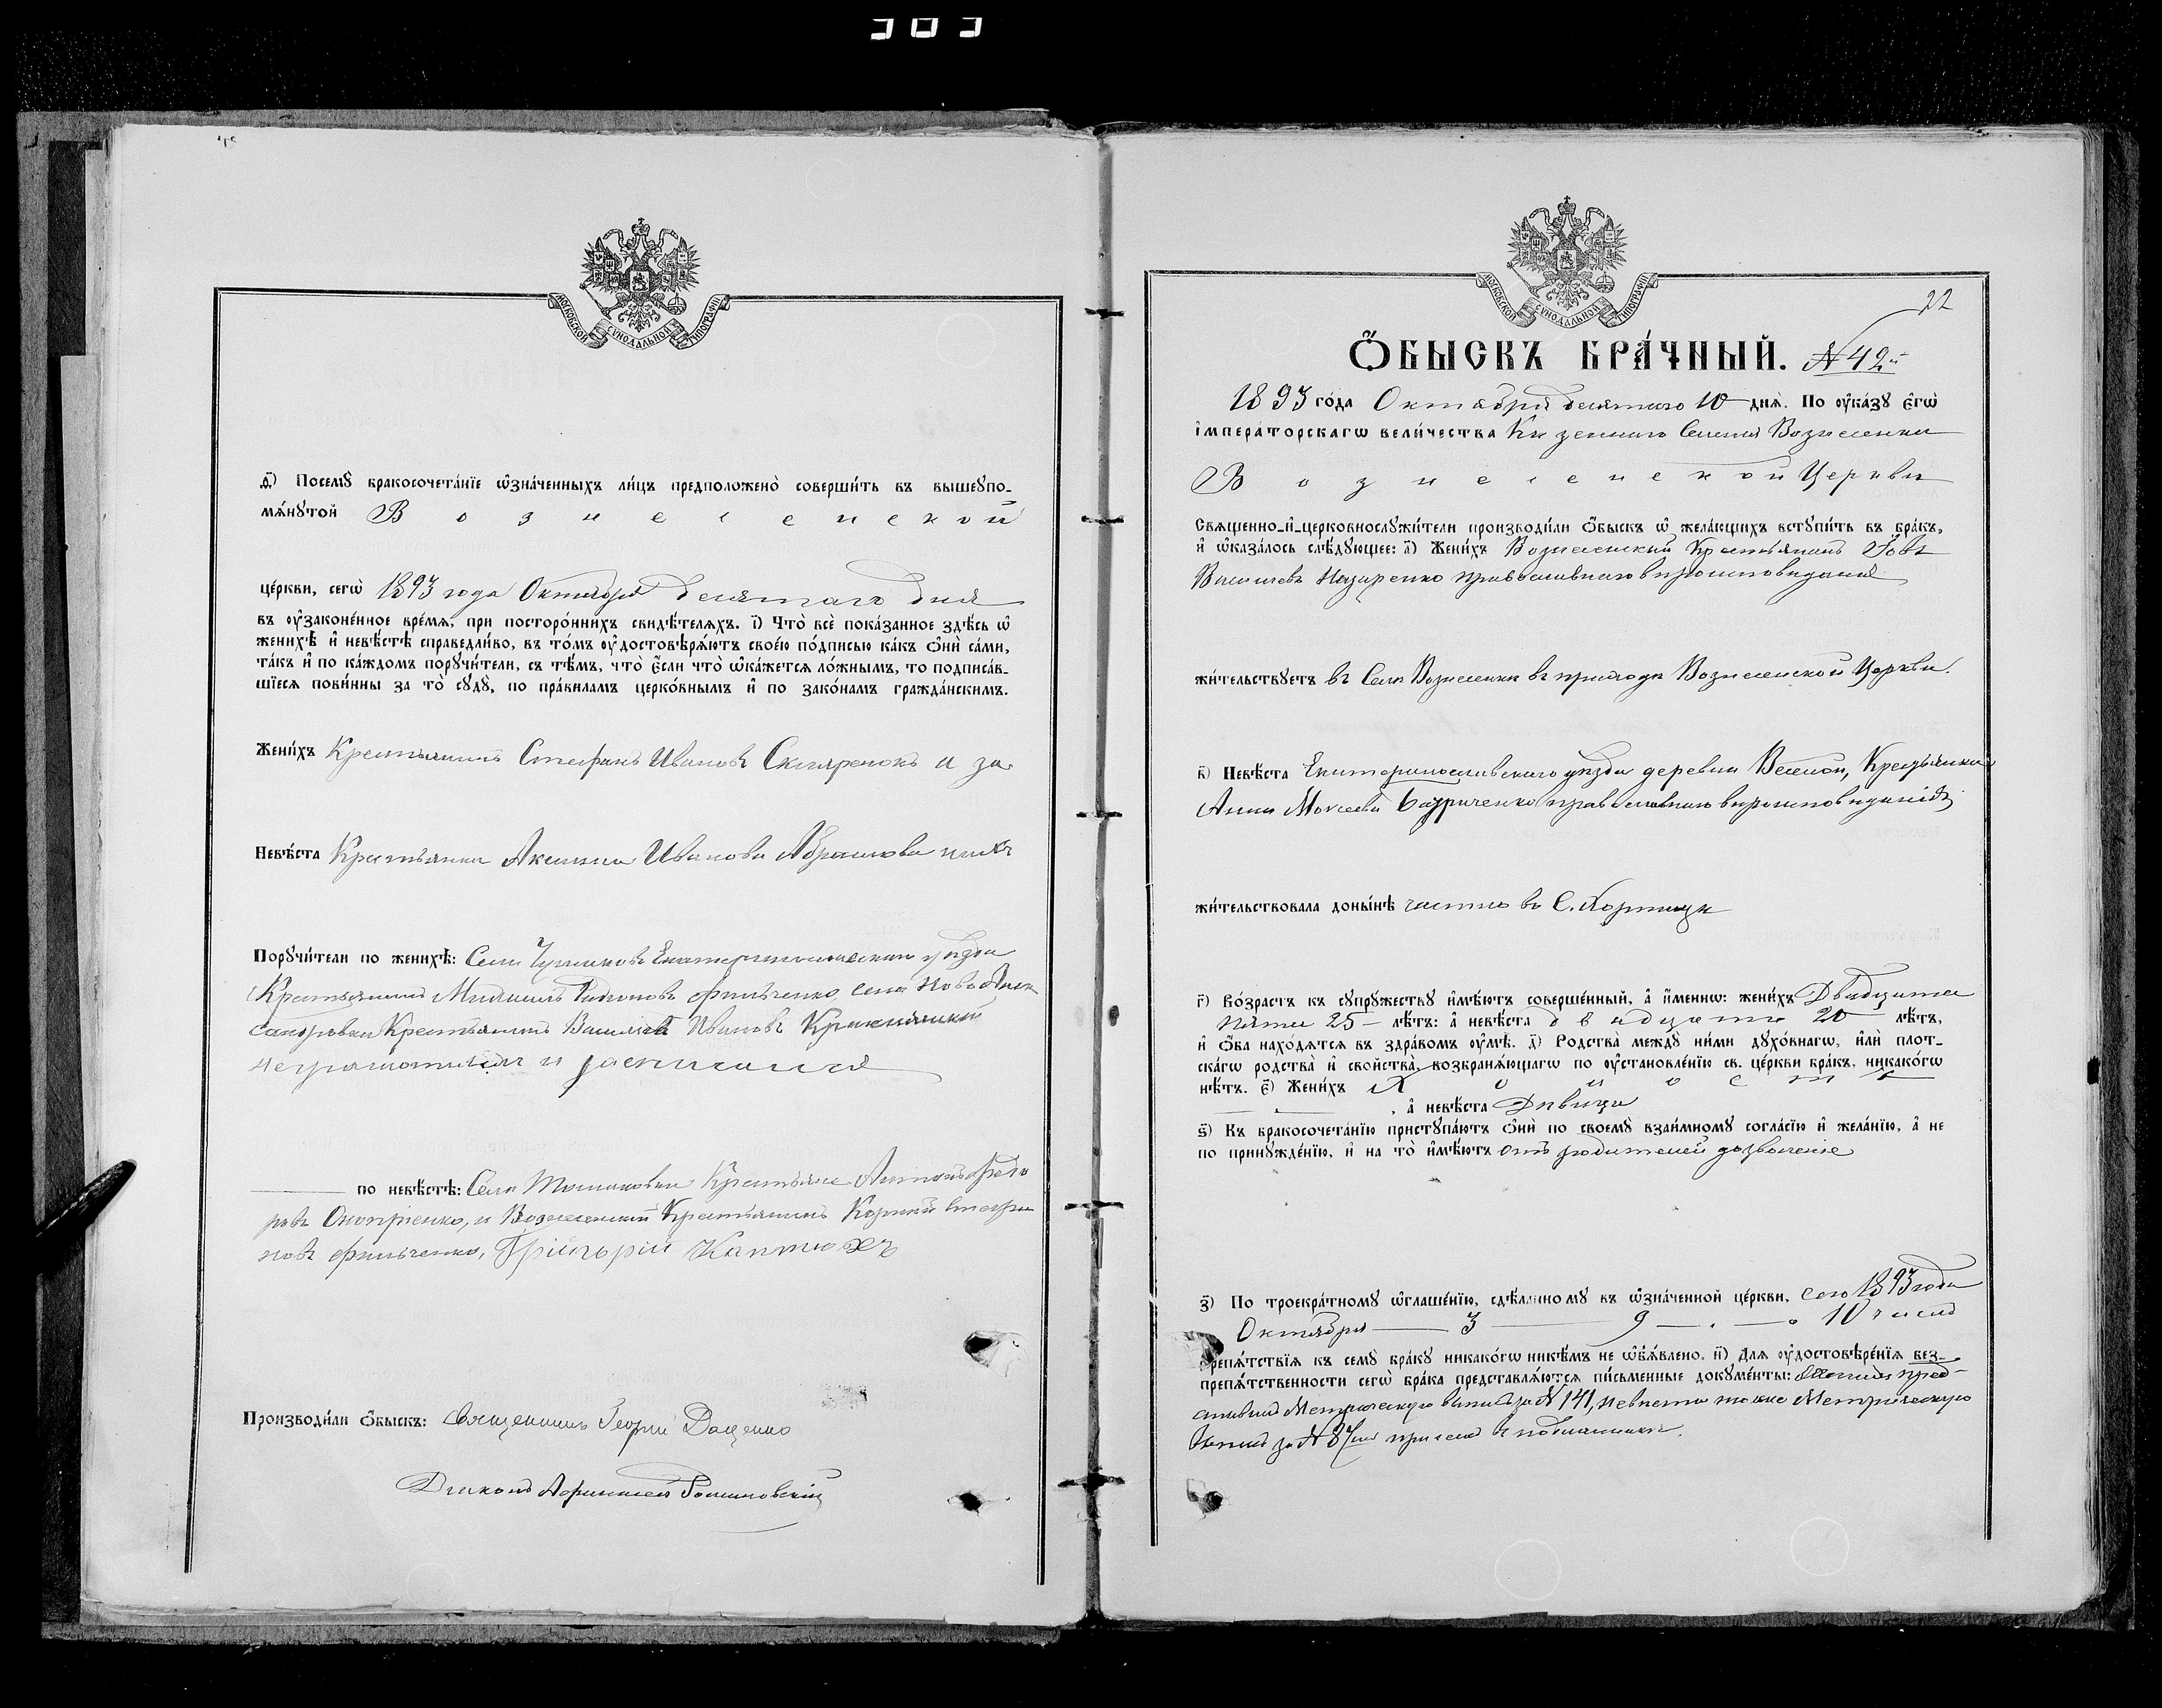 303
МОСКОВСКОЙ СѴНОДАЛЬНОЙ ТИПОГРАФІИ
д҃) Посемꙋ̀ бракосочета́нїе ѡ҆зна́ченныхъ ли́цъ предположено̀ соверши́ть въ вышеꙋпо-
мѧ́нꙋтой Вознесенской
це́ркви, сегѡ̀ 1893 года Октября десятаго дня
въ ᲂу҆законе́нное вре́мѧ, при посторо́ннихъ свидѣ́телѧхъ. і҃) Что̀ всѐ пока́занное здѣ́сь ѡ҆
женихѣ̀ и҆ невѣ́стѣ справедли́во, въ то́мъ ᲂу҆достовѣрѧ́ютъ свое́ю по́дписью ка́къ ѻ҆нѝ са́ми,
та́къ и҆ по ка́ждомъ порꙋчи́тели, съ тѣ́мъ, что̀ є҆́сли что̀ ѡ҆ка́жетсѧ ло́жнымъ, то подписа́в-
шїесѧ пови́нны за то̀ сꙋдꙋ̀, по пра́виламъ церко́внымъ и҆ по зако́намъ гражда́нскимъ.
Жени́хъ Крестьянинъ Стефанъ Ивановъ Скляренокъ и за
Невѣ́ста Крестьянка Аксинья Иванова Абрамова
Порꙋчи́тели по женихѣ̀: Села Екатеринославскаго уѣзда
Крестьянинъ Михаилъ Родіоновъ Фильченко, села Ново Алек
сандровки Крестьянинъ Василій Ивановъ
неграмотны и росписался
по невѣ́стѣ: Села Томаковки Крестьяне Антонъ Федо
ровъ Оноприенко, и Вознесенскій Крестьянинъ Корній Стефа
новъ Фильченко, Грiигорiй Каптюхъ
Производи́ли ѻ҆́быскъ: Священникъ Георгій Даценко
Діаконъ Афанасій Романовскій
МОСКОВСКОЙ СѴНОДАЛЬНОЙ ТИПОГРАФІИ
22
Ѻ҆́БЫСКЪ БРА́ЧНЫЙ. №42й
1893 го́да Октября десятаго 10 днѧ̀. По ᲂу҆ка́зꙋ є҆гѡ̀
і҆мпера́торскагѡ вели́чества Казеннаго Селенія Вознесенки
Вознесенской Церкви
Сващенно-и҆-церковнослꙋжи́тели производи́ли ѻ҆́быскъ ѡ҆ жела́ющихъ встꙋпи́ть въ бра́къ,
и҆ ѡ҆каза́лось слѣ́дꙋющее: а҃) Жени́хъ Вознесенскій Крестьянинъ Іовъ
Васильевъ Назаренко православнаго вѣроисповѣданія
жи́тельствꙋетъ въ Селѣ Вознесенкѣ въ приходѣ Вознесенской Церкви.
в҃) Невѣ́ста Екатеринославскаго уѣзда деревни Веселой, Крестьянка
Анна Моисеева православнаго вѣроисповѣданія
жи́тельствовала доны́нѣ частно въ С. Хортицѣ
г҃) Во́зрастъ къ сꙋпрꙋ́жествꙋ и҆мѣ́ютъ соверше́нный, а҆ и҆́менно: жени́хъ Двадцати
пяти 25 лѣ́тъ: а҆ невѣ́ста двадцати 20 лѣ́тъ,
и҆ ѻ҆́ба нахо́дѧтсѧ въ здра́вомъ ᲂу҆мѣ̀. д҃) Родства̀ междꙋ̀ ни́ми дꙋхо́внагѡ, и҆лѝ плот-
ска́гѡ родства̀ и҆ сво́йства̀, возбранѧ́ющагѡ по ᲂу҆становле́нїю св. це́ркви бра́къ, никако́гѡ
нѣ́тъ. є҃) Жени́хъ Холостъ
, а҆ невѣ́ста Дѣвица
ѕ҃) Къ бракосочета́нїю пристꙋпа́ютъ ѻ҆нѝ по своемꙋ̀ взаи́мномꙋ согла́сїю и҆ жела́нїю, а҆ не
по принꙋжде́нїю, и҆ на то̀ и҆мѣ́ютъ отъ родителей дозволеніе
з҃) По троекра́тномꙋ ѡ҆глаше́нїю, сдѣ́ланномꙋ въ ѡ҆зна́ченной це́ркви, сего 1893 года
Октября 3 9 10 числа
препѧ́тствїѧ къ семꙋ̀ бра́кꙋ никако́гѡ никѣ́мъ не ѡ҆б̾ѧ́влено. и҃) Длѧ ᲂу҆достовѣре́нїѧ без-
препѧ́тственности сегѡ̀ бра́ка представлѧ́ютсѧ пи́сьменные докꙋме́нты: Женихъ пред-
ставилъ Метрическую выпись за № 141, невеста также Метрическую
за № 87